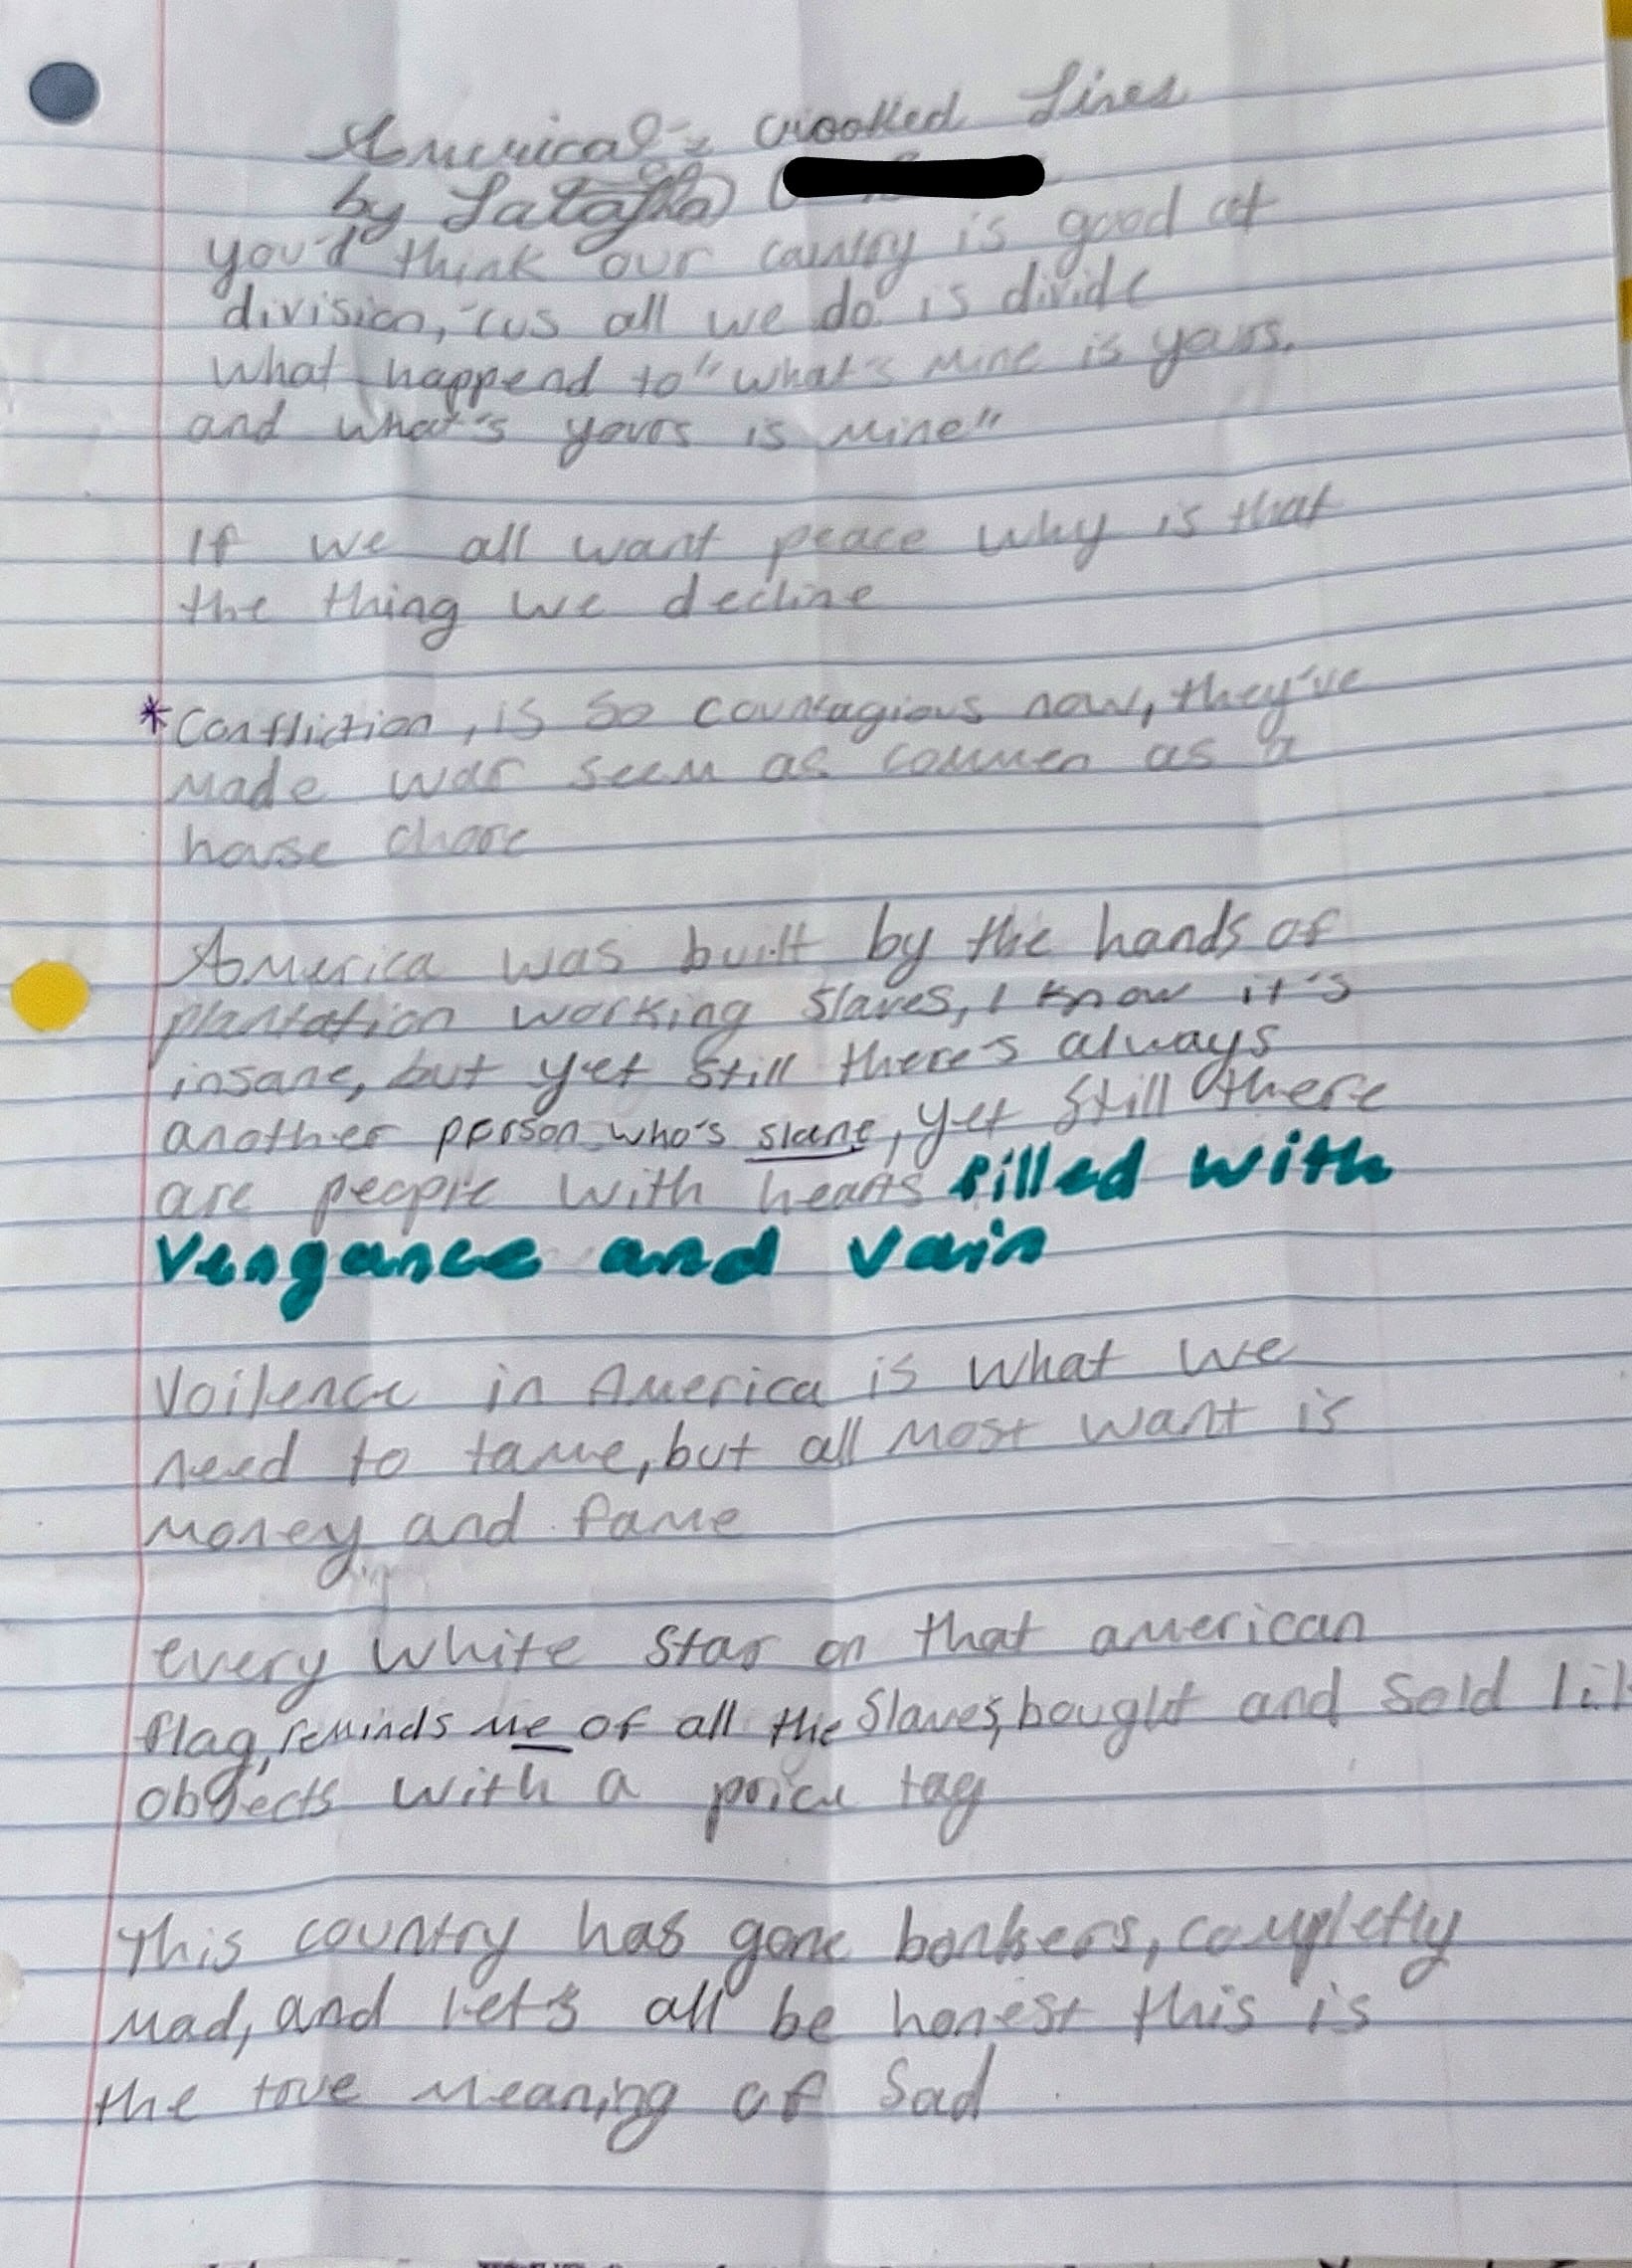 America's Crooked Lines
by Latasha
you'd think our cauntry is good at
division, 'cus all we do is divide
What happend to "what's mine is yours.
and what's yours is mine"
If we all want peace why is that
the thing we decline
*Confliction, is so countagious now, they've
made war seem as commen as a
house chore
America was built by the hands of
plantation working slaves, I know it's
insane, but yet still there's always
another person who's slane, yet still there
are people with hearts filled with
vengance and vain
Voilence in America is what we
need to tame, but all most want is
money and fame
every white star on that american
flag, reminds me of all the slaves, bought and sold lik
objects with a price tag
This country has gone bonkers, completly
mad, and let's all be honest this is
the true meaning of sad